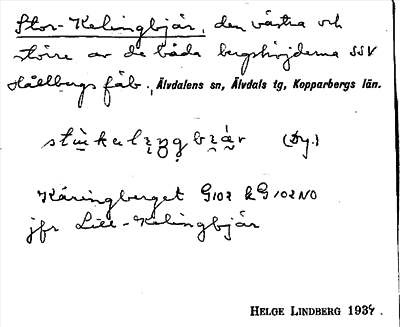 Stor-Kelingbjär, den västra och
större av de båda bergshöjderna SSV
Hållbergs fäb., Älvdalens sn, Älvdals tg, Kopparbergs län.
(Dy.)
Käringberget G102 kG102NO
jfr Lill-Kelingbjär
HELGE LINDBERG 1937.